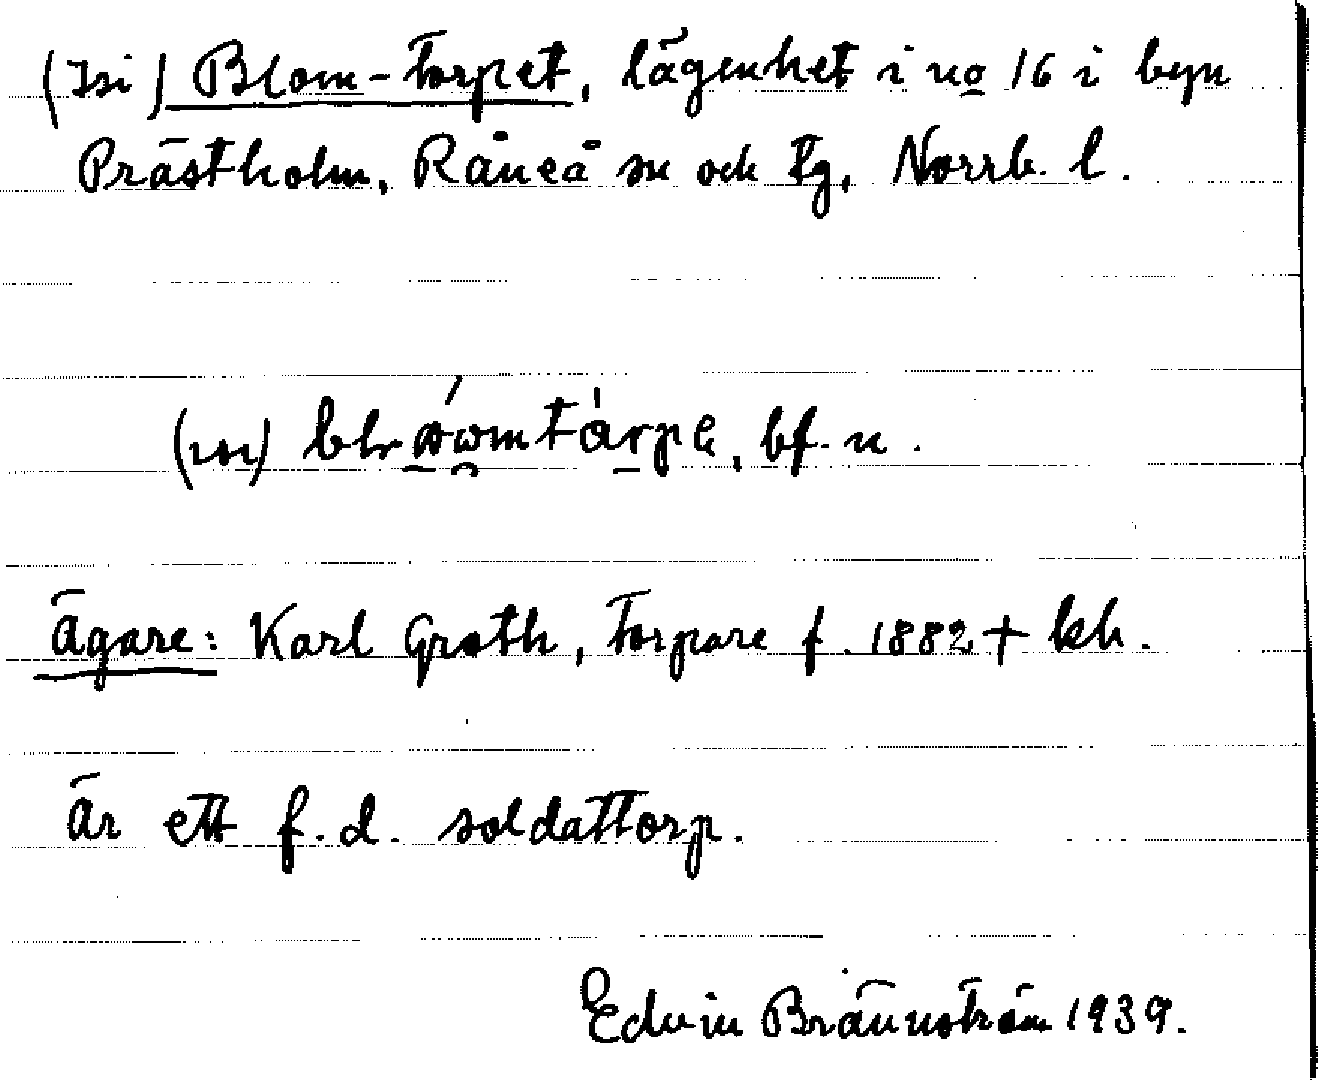 (Isi) Blom-torpet, lägenhet i no 16 i byn
Prästholm, Råneå sn och tg, Norrb. l.
bf. n.
Ägare: Karl Groth, torpare f. 1882 + kh.
Är ett f.d. soldattorp.
Edvin Brännström 1939.